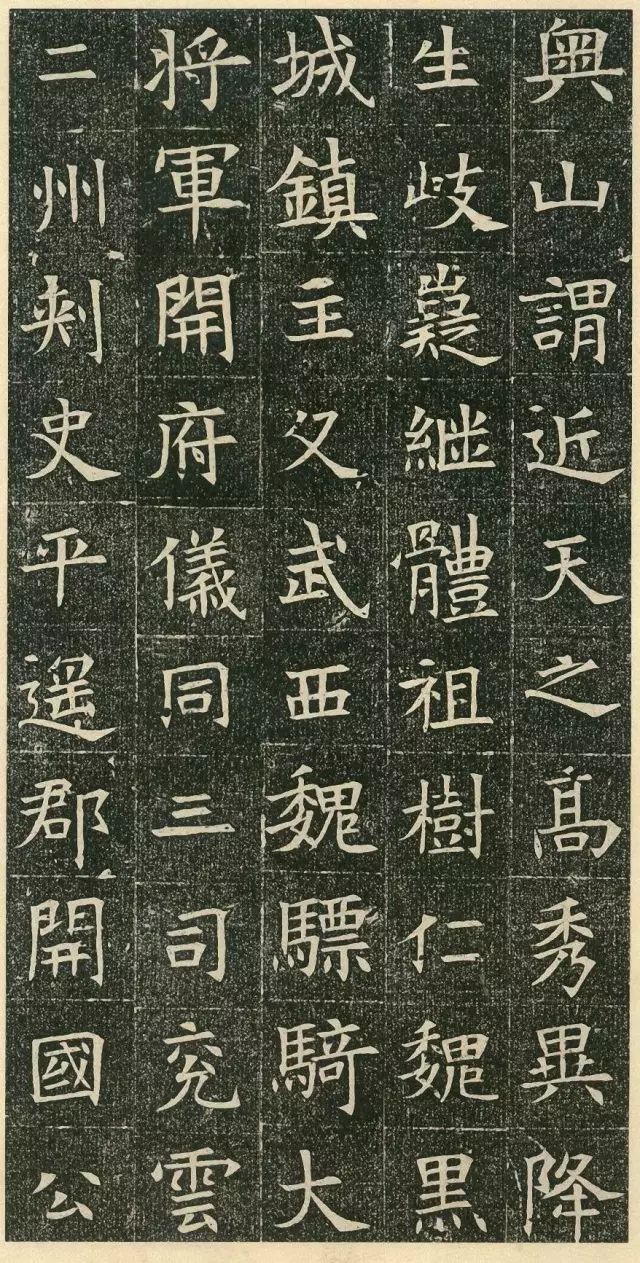 奧山謂近天之髙秀異降
生岐嶷継體祖樹仁魏黒
城鎮主父武西魏驃騎大
将軍開府儀同三司兗雲
二州刺史平遥郡開國公